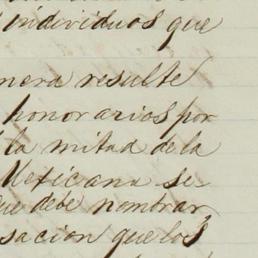 individuos que
nera resulte
honorarios por
la mitad de la
Mexicana se
que debe nombrar
sacion que los